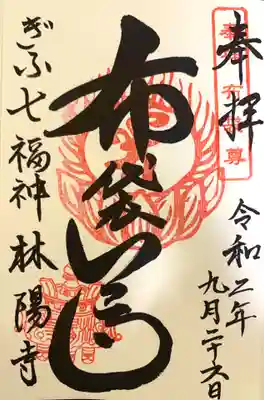 奉拝
令和二年
九月二十六日
布袋
ぎふ七福神 林陽寺